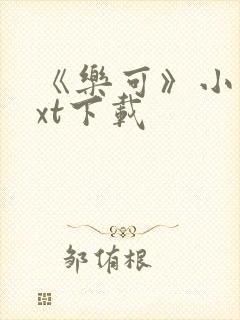 《樂可》小
xt下載
邹侑根